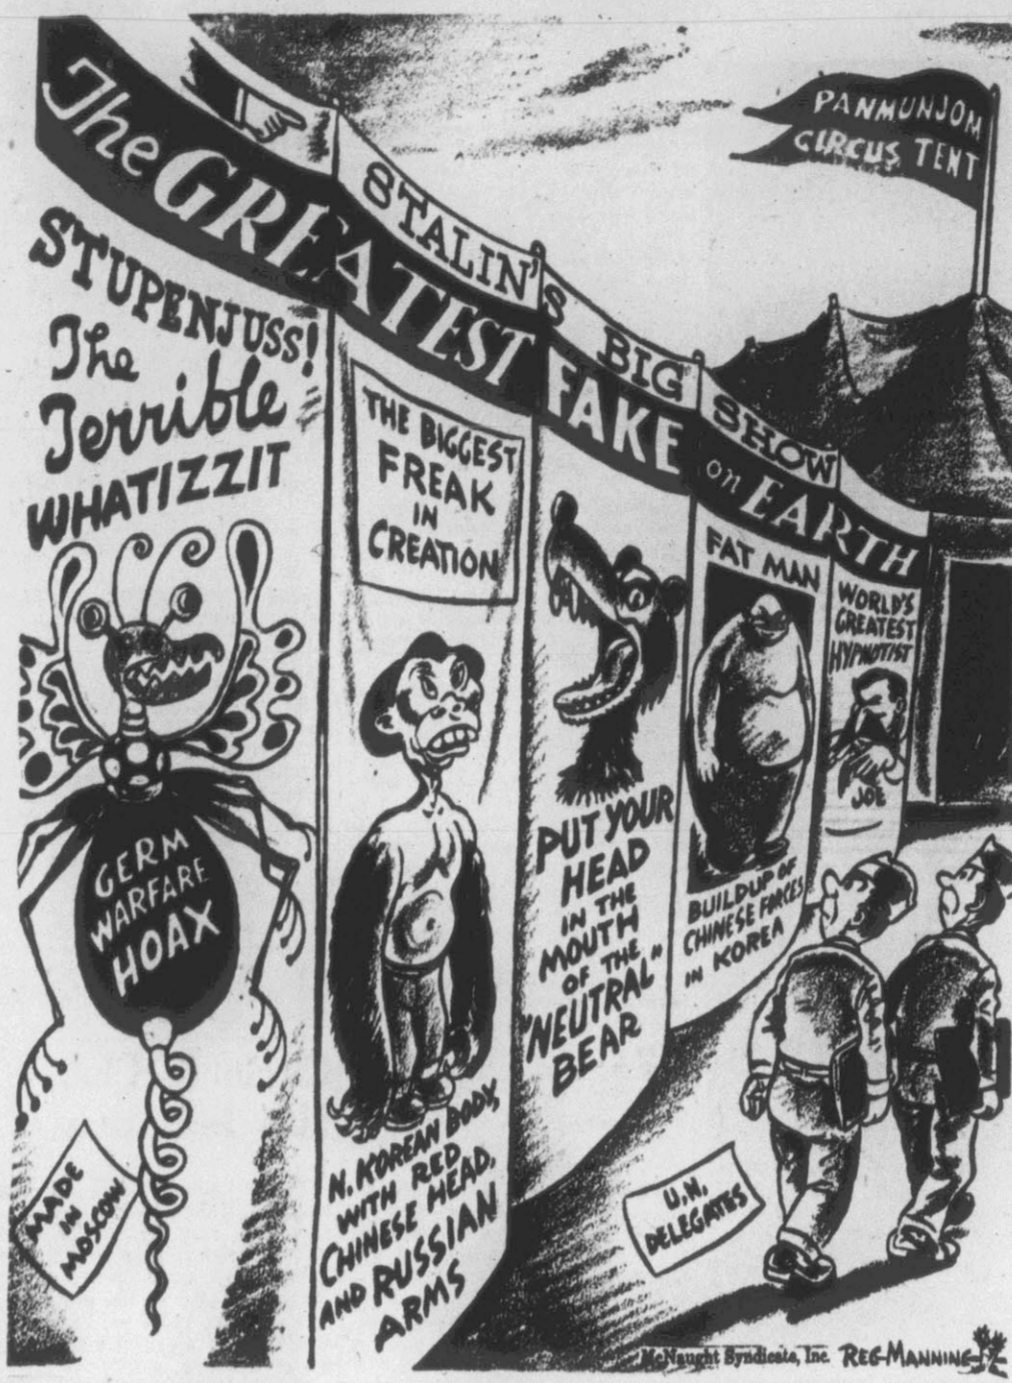 PANMUNJOM
CIRCUS TENT
STALIN'S BIG SHOW
The GREATEST FAKE on EARTH
STUPENJUSS!
The
Terrible
WHATIZZIT
GERM
WARFARE
HOAX
MADE
IN
MOSCOW
THE BIGGEST
FREAK
IN
CREATION
N. KOREAN BODY,
WITH RED
CHINESE HEAD,
AND RUSSIAN
ARMS
PUT YOUR
HEAD
IN THE
MOUTH
OF THE
"NEUTRAL"
BEAR
FAT MAN
BUILDUP OF
CHINESE FORCES
IN KOREA
WORLD'S
GREATEST
HYPNOTIST
JOE
U.N.
DELEGATES
McNaught Syndicate, Inc.
REG MANNING